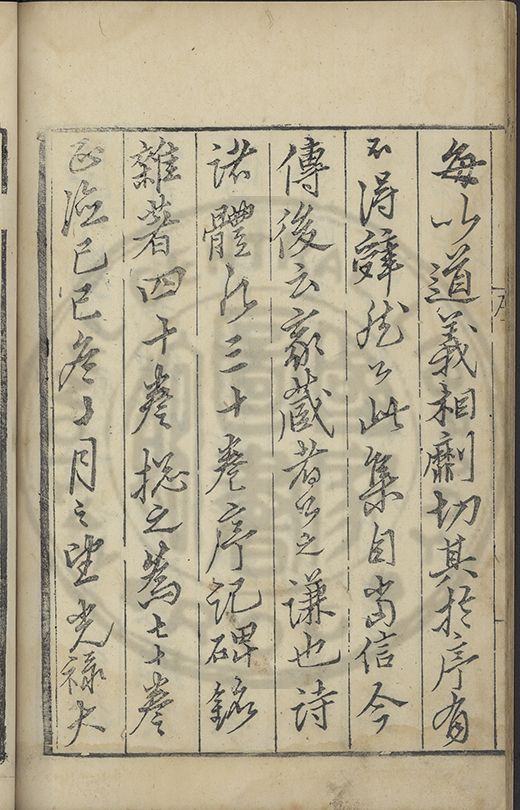 每以道義相劘切其於序有
不得辭然公此集自當信今
傳後云家藏者公之謙也詩
諸體凡三十卷序記碑銘
雜著四十卷揔之爲七十卷
正德己巳冬十月之望光祿大